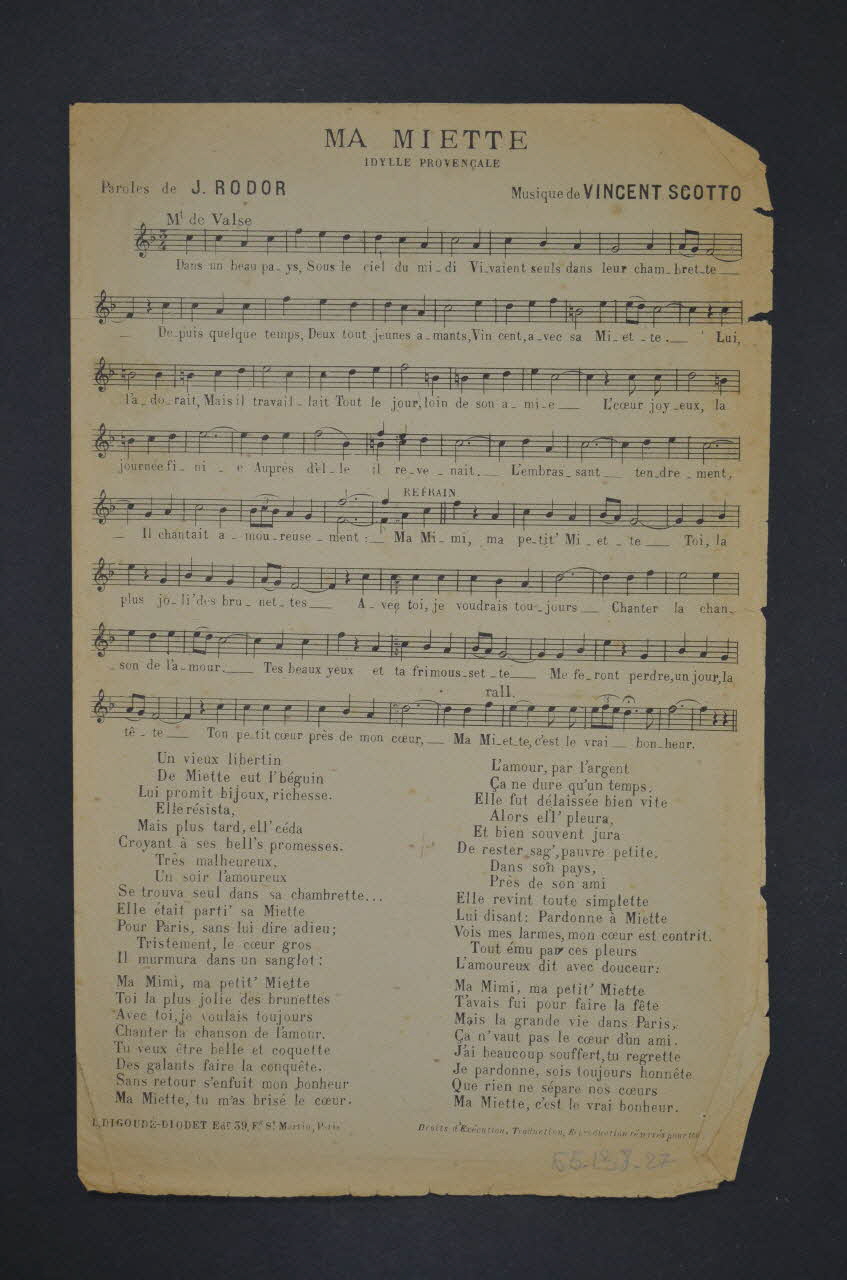 MA MIETTE
IDYLLE PROVENÇALE
Paroles de J. RODOR
Musique de VINCENT SCOTTO
Mt de Valse
Dans un beau pa_ys, Sous le ciel du mi_di Vi_vaient seuls dans leur cham_bret_te
De_puis quelque temps, Deux tout jeunes a_mants, Vin cent, a_vec sa Mi_et_te. Lui,
l'a_do_rait, Mais il travail_lait Tout le jour, loin de son a_mi_e L'cœur joy_eux, la
journée fi_ni_e Auprès d'el_le il re_ve_nait. L'embras_sant ten_dre_ment,
REFRAIN
Il chantait a_mou_reuse_ment: Ma Mi_mi, ma pe_tit' Mi_et_te Toi, la
plus jo_li' des bru_net_tes A_vec toi, je voudrais tou_jours Chanter la chan_
_son de l'a_mour. Tes beaux yeux et ta frimous_set_te Me fe_ront perdre, un jour, la
rall.
tê_te Ton pe_tit cœur près de mon cœur, Ma Mi_et_te, c'est le vrai bon_heur.
Un vieux libertin
De Miette eut l'béguin
Lui promit bijoux, richesse.
Elle résista,
Mais plus tard, ell' céda
Croyant à ses bell's promesses.
Très malheureux,
Un soir l'amoureux
Se trouva seul dans sa chambrette...
Elle était parti' sa Miette
Pour Paris, sans lui dire adieu;
Tristement, le cœur gros
Il murmura dans un sanglot:
Ma Mimi, ma petit' Miette
Toi la plus jolie des brunettes
Avec toi, je voulais toujours
Chanter la chanson de l'amour.
Tu veux être belle et coquette
Des galants faire la conquête.
Sans retour s'enfuit mon bonheur
Ma Miette, tu m'as brisé le cœur.
L'amour, par l'argent
Ça ne dure qu'un temps.
Elle fut délaissée bien vite
Alors ell' pleura,
Et bien souvent jura
De rester sag', pauvre petite.
Dans son pays,
Près de son ami
Elle revint toute simplette
Lui disant: Pardonne à Miette
Vois mes larmes, mon cœur est contrit.
Tout ému par ces pleurs
L'amoureux dit avec douceur:
Ma Mimi, ma petit' Miette
T'avais fui pour faire la fête
Mais la grande vie dans Paris,
Ça n'vaut pas le cœur d'un ami.
J'ai beaucoup souffert, tu regrette
Je pardonne, sois toujours honnête
Que rien ne sépare nos cœurs
Ma Miette, c'est le vrai bonheur.
L. DIGOUDÉ-DIODET Edr 39, Fg St Martin, Paris
Droits d'Exécution, Traduction, Reproduction réservés pour tt